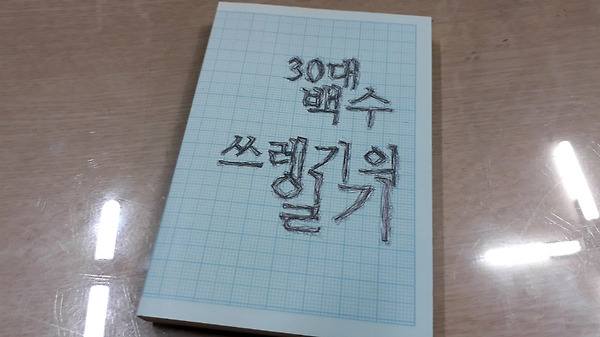 30대
백수
쓰레기의
일기